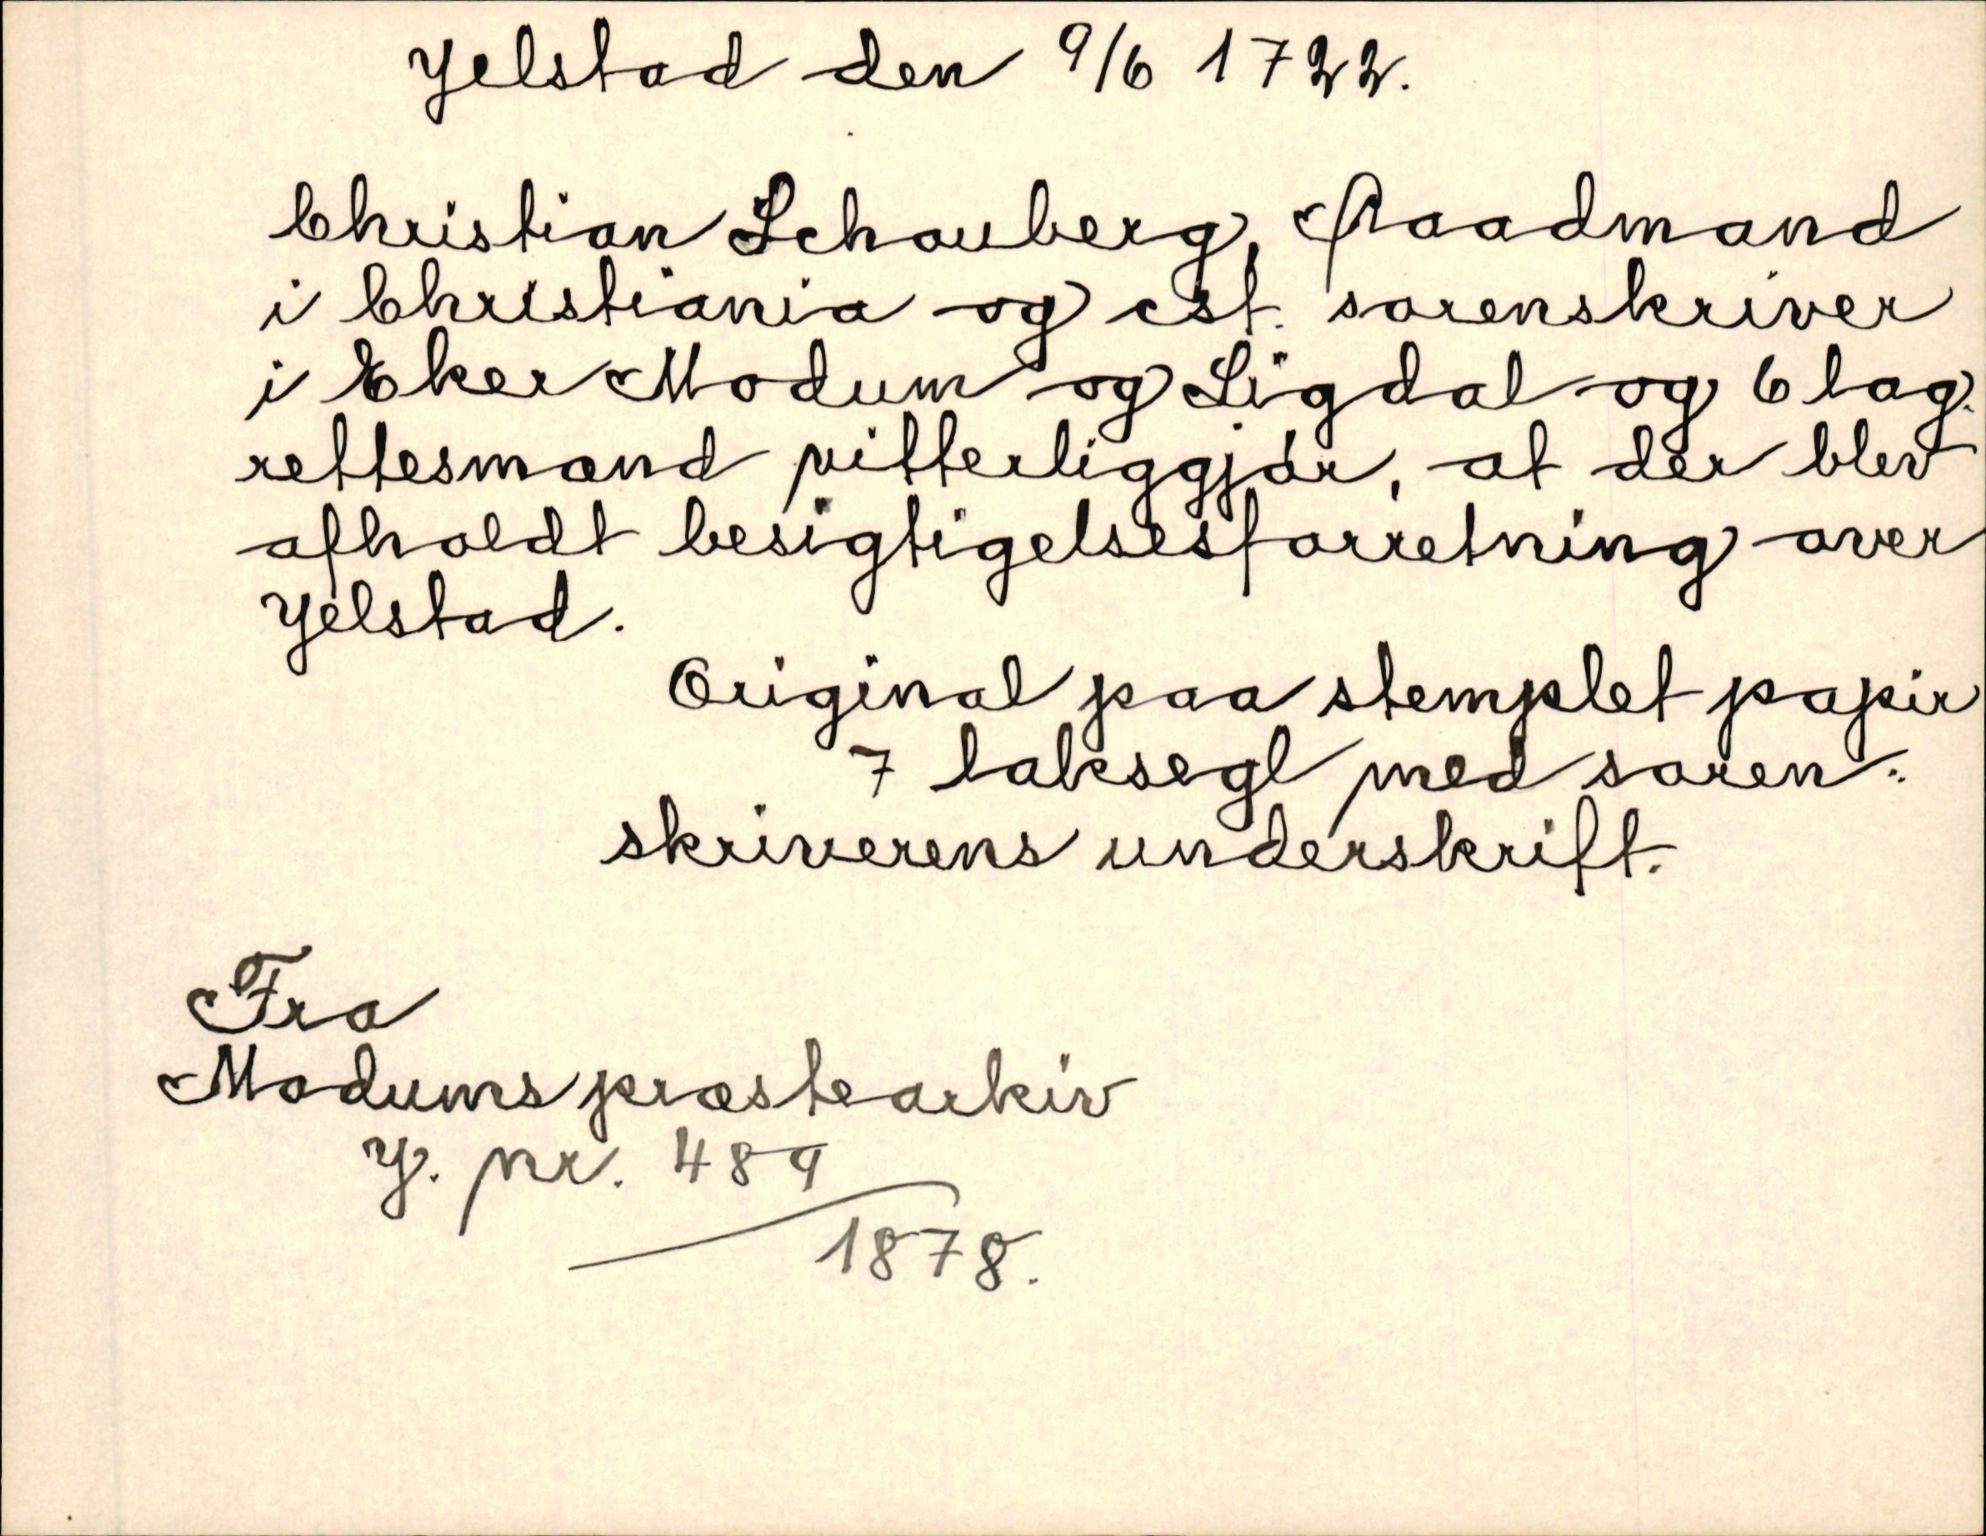 Yelstad den 9/6 1722.
Christian Schouberg, Raadmand
i Christiania og cst. sorenskriver
i Eker Modum og Sigdal og 6 lag.
rettesmænd vitterliggjör, at der blev
afholdt besigtigelsesforretning over
Yelstad.
Original paa stemplet papir
7 laksegl med soren:
skriverens underskrift.
Fra
Modums præstearkiv
y. nr. 489
1878.